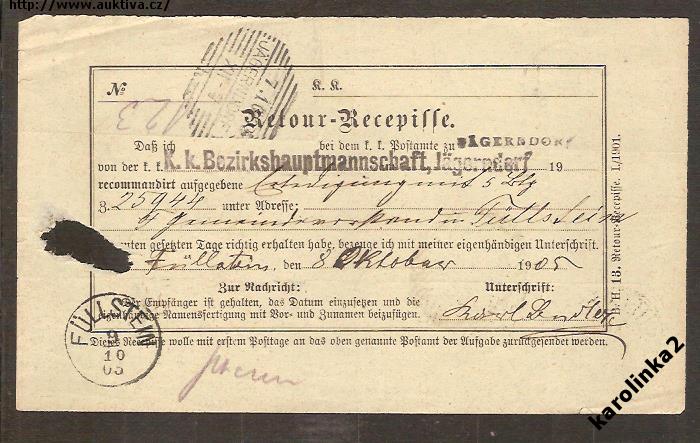 http://www.auktiva.cz/
№ K. K.
123
Retour-Recepisse.
Daß ich bei dem k. k. Postamte zu JÄGERNDORF
von der k. k. K. k. Bezirkshauptmannschaft, Jägerndorf 19
recommandirt aufgegebene Erledigung mit 5 Blg
3. 25944 unter Adresse:
Gemeindevorstand in Füllstein
ten gesetzten Tage richtig erhalten habe, bezeuge ich mit meiner eigenhändigen Unterschrift.
Füllstein, den 8 Oktober 1905
Zur Nachricht: Unterschrift:
Der Empfänger ist gehalten, das Datum einzusetzen und die
eigenhändige Namensfertigung mit Vor- und Zunamen beizufügen. Karl
Dieses Recepisse wolle mit erstem Posttage an das oben genannte Postamt der Aufgabe zurückgesendet werden.
FÜLLSTEIN
9
10
05
B. H. 13. Retour-Recepisse. I./1901.
karolinka2